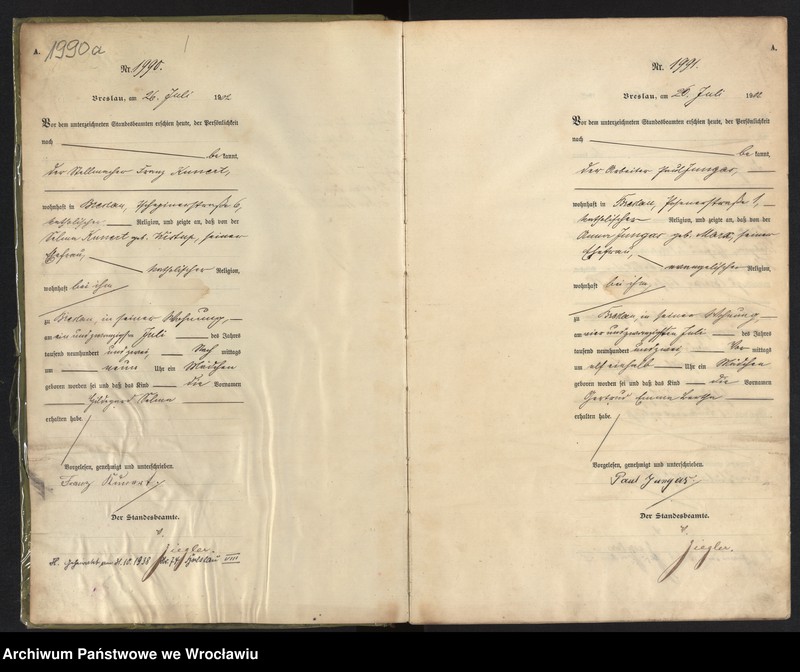 A. 1990a
Nr. 1990.
Breslau, am 26. Juli 1902
Vor dem unterzeichneten Standesbeamten erschien heute, der Persönlichkeit
nach
be kannt,
der Stellmacher Franz Kunert,
wohnhaft in Breslau, 6,
katholischer Religion, und zeigte an, daß von der
Selma Kunert geb. seiner
Ehefrau,
katholischer Religion,
wohnhaft bei ihm,
zu Breslau, in seiner Wohnung,
am ein und zwanzigsten Juli des Jahres
tausend neunhundert und zwei Nach mittags
um neun Uhr ein Mädchen
geboren worden sei und daß das Kind die Vornamen
Hildegard Selma
erhalten habe.
Vorgelesen, genehmigt und unterschrieben.
Franz Kunert.
Der Standesbeamte.
Ziegler.
31.10.1938 Breslau VIII
A.
Nr. 1991.
Breslau, am 26. Juli 1902.
Vor dem unterzeichneten Standesbeamten erschien heute, der Persönlichkeit
nach
be kannt,
der Arbeiter Paul Jungas,
wohnhaft in Breslau, 1,
katholischer Religion, und zeigte an, daß von der
Anna Jungas geb. seiner
Ehefrau,
evangelischer Religion,
wohnhaft bei ihm,
zu Breslau, in seiner Wohnung,
am vier und zwanzigsten Juli des Jahres
tausend neunhundert und zwei Vor mittags
um elf einhalb Uhr ein Mädchen
geboren worden sei und daß das Kind die Vornamen
Gertrud Emma Bertha
erhalten habe.
Vorgelesen, genehmigt und unterschrieben.
Paul Jungas.
Der Standesbeamte.
Ziegler.
Archiwum Państwowe we Wrocławiu